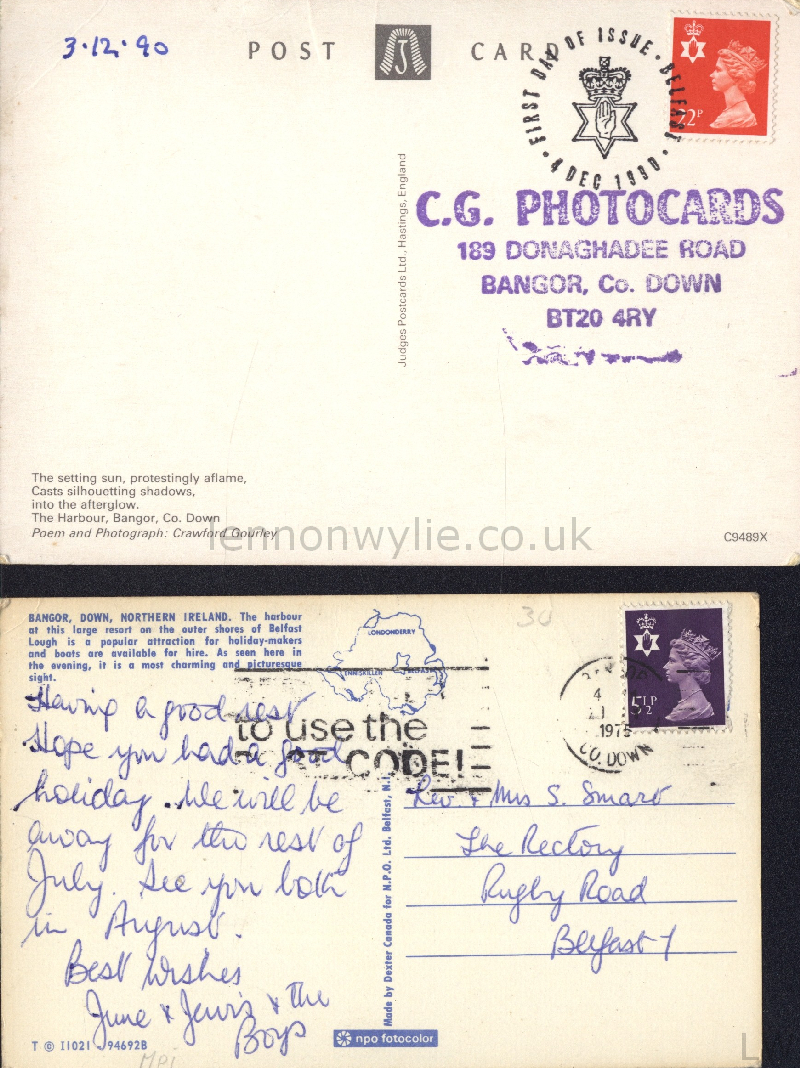 3·12·90
POST CARD
J
FIRST DAY OF ISSUE · BELFAST ·
4 DEC 1990
22P
C.G. PHOTOCARDS
189 DONAGHADEE ROAD
BANGOR, Co. DOWN
BT20 4RY
Judges Postcards Ltd., Hastings, England
The setting sun, protestingly aflame,
Casts silhouetting shadows,
into the afterglow.
The Harbour, Bangor, Co. Down
Poem and Photograph: Crawford Gourley
C9489X
lennonwylie.co.uk
BANGOR, DOWN, NORTHERN IRELAND. The harbour
at this large resort on the outer shores of Belfast
Lough is a popular attraction for holiday-makers
and boats are available for hire. As seen here in
the evening, it is a most charming and picturesque
sight.
LONDONDERRY
ENNISKILLEN
BELFAST
30
5½P
1975
CO. DOWN
to use the
POST CODE!
Having a good rest
Hope you had a good
holiday. We will be
away for the rest of
July. See you both
in August.
Best Wishes
June & Jervis & the
Boys
Rev & Mrs S. Smart
The Rectory
Rugby Road
Belfast 7
Made by Dexter Canada for N.P.O. Ltd. Belfast, N.I.
npo fotocolor
T © II021 94692B
MPI
L